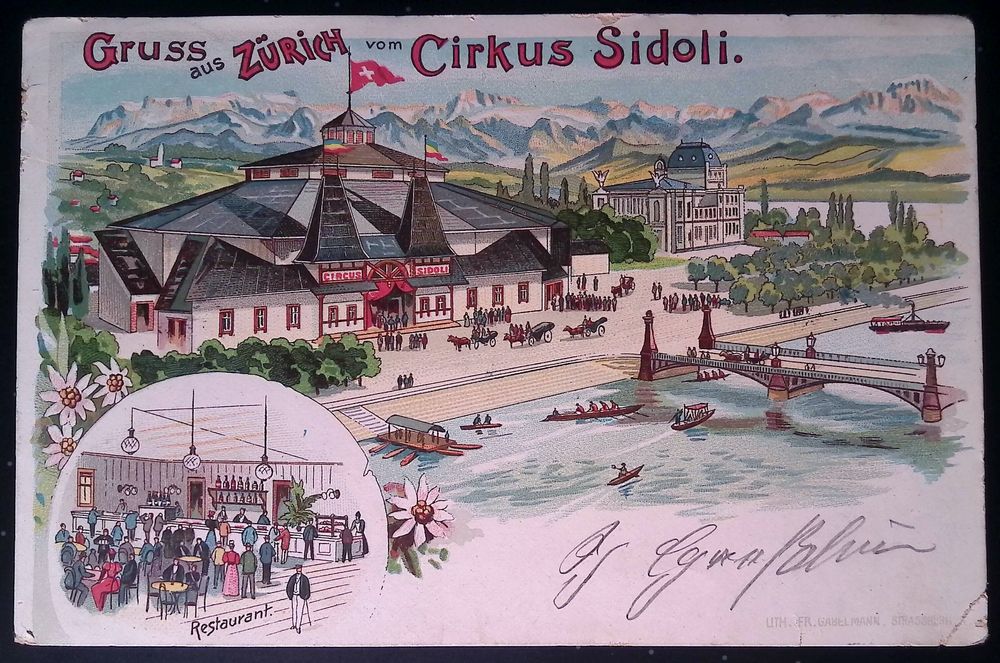 Gruss aus ZÜRICH vom Cirkus Sidoli.
CIRCUS SIDOLI
Restaurant.
LITH. FR. GABELMANN, STRASSBURG